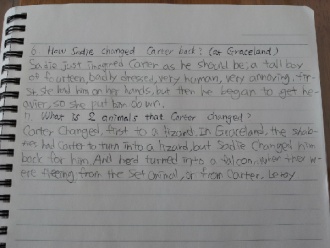 6 How Sadie changed Carter back? (at Graceland)
Sadie just imagined Carter as he should be, a tall boy
of fourteen, badly dressed, very human, very annoying, fir-
st, she had him on her hands, but then he began to get he-
avier, so she put him down.
7) What is 2 animals that Carter changed?
Carter Changed, first to a lizard, In Graceland, the
had Carter to turn into a lizard, but Sadie Changed him
back for him. And he'd turned into a falcon, when they w-
ere fleeing from the Set animal, or from Carter, Leroy